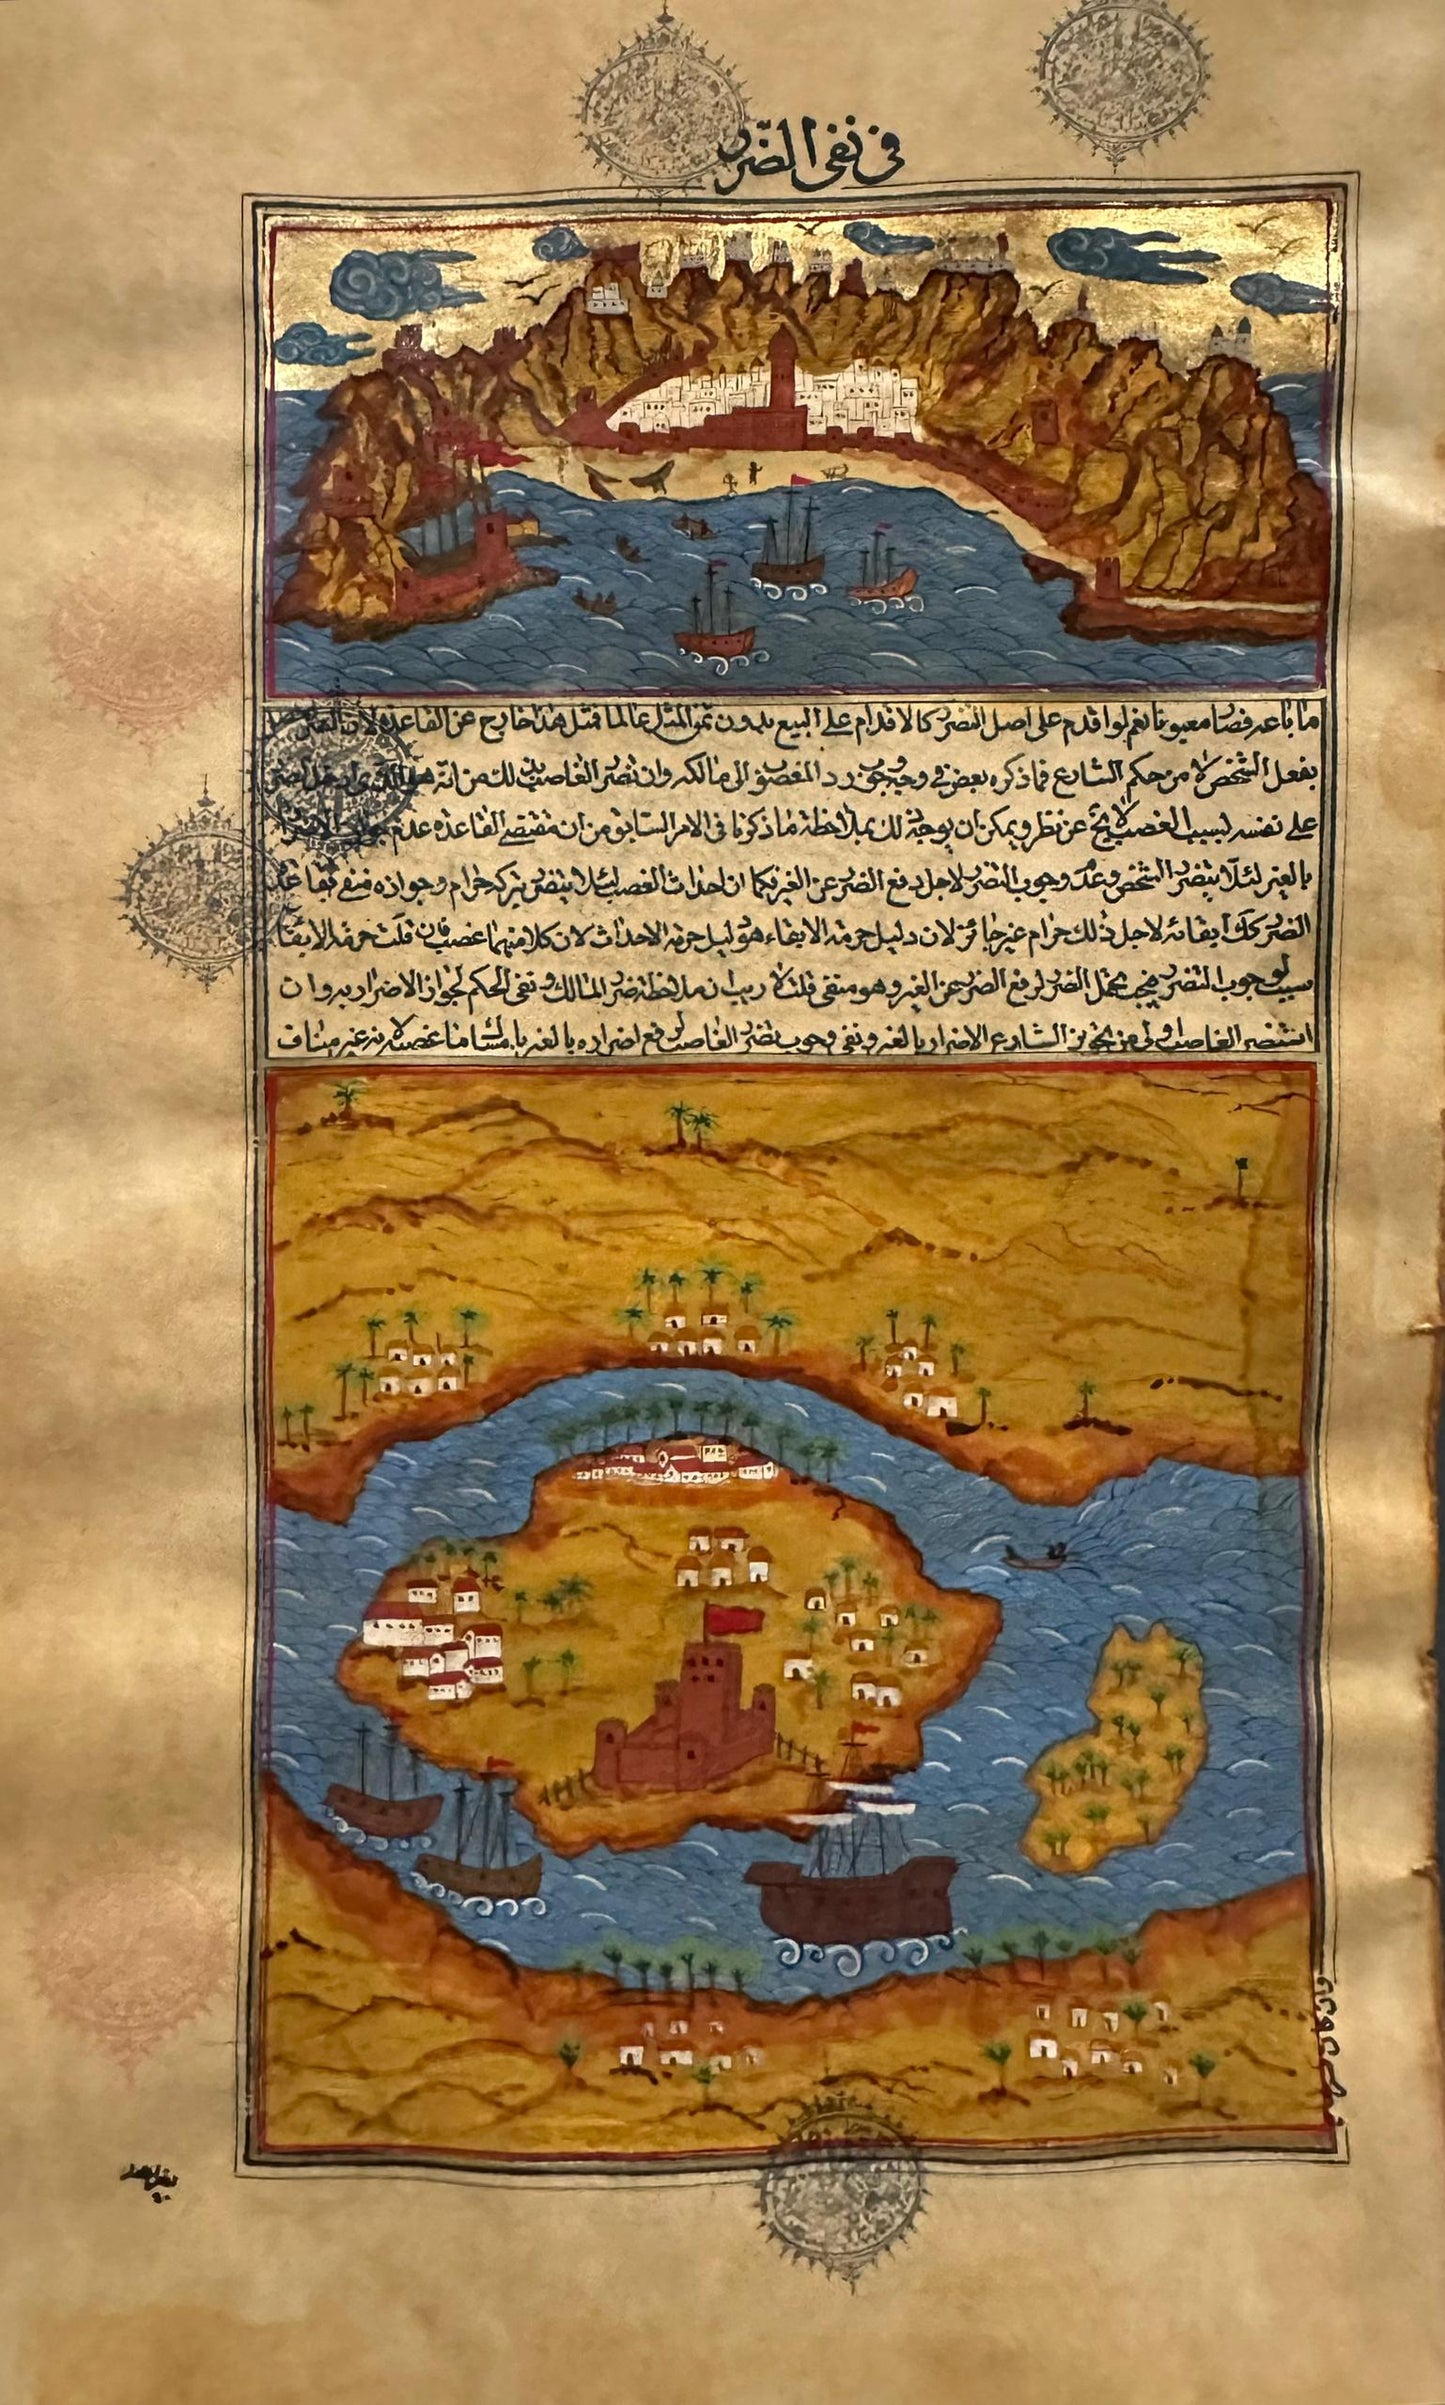 في نفي الضرر
ما باعه فضا معيوبا نعم لو اقدم على اصل التضرر كالاقدام على البيع بدون ثمن المثل عالما فمثل هذا خارج عن القاعدة لان الضرر
بفعل الشخص لا من حكم الشارع فما ذكره بعض في وجه وجوب رد المغصوب الى مالكه وان تضرر الغاصب بذلك من انه هو الذي ادخل الضرر
على نفسه بسبب الغصب لا يخ عن نظر ويمكن ان يوجه ذلك بملاحظة ما ذكرنا في الامر السابق من ان مقتضى القاعدة عدم جواز الاضرار
بالغير لئلا يتضرر الشخص وعدم وجوب التضرر لاجل دفع الضرر عن الغير فكما ان احداث الغصب لئلا يتضرر بتركه حرام وجوازه منفي بقاعدة
الضرر كك ابقائه لاجل ذلك حرام غير جائز لان دليل حرمة الابقاء هو دليل حرمة الاحداث لان كلا منهما غصب فان قلت حرمة الابقاء
سبب لوجوب التضرر فيجب تحمل الضرر لرفع الضرر عن الغير وهو منفي قلت لا ريب ان ملاحظة ضرر المالك ونفي الحكم لجواز الاضرار به وان
تضرر الغاصب اولى من تجويز الشارع الاضرار بالغير ونفي وجوب تضرر الغاصب لو دفع اضراره بالغير بامساك ما غصبه لانه غير مناف